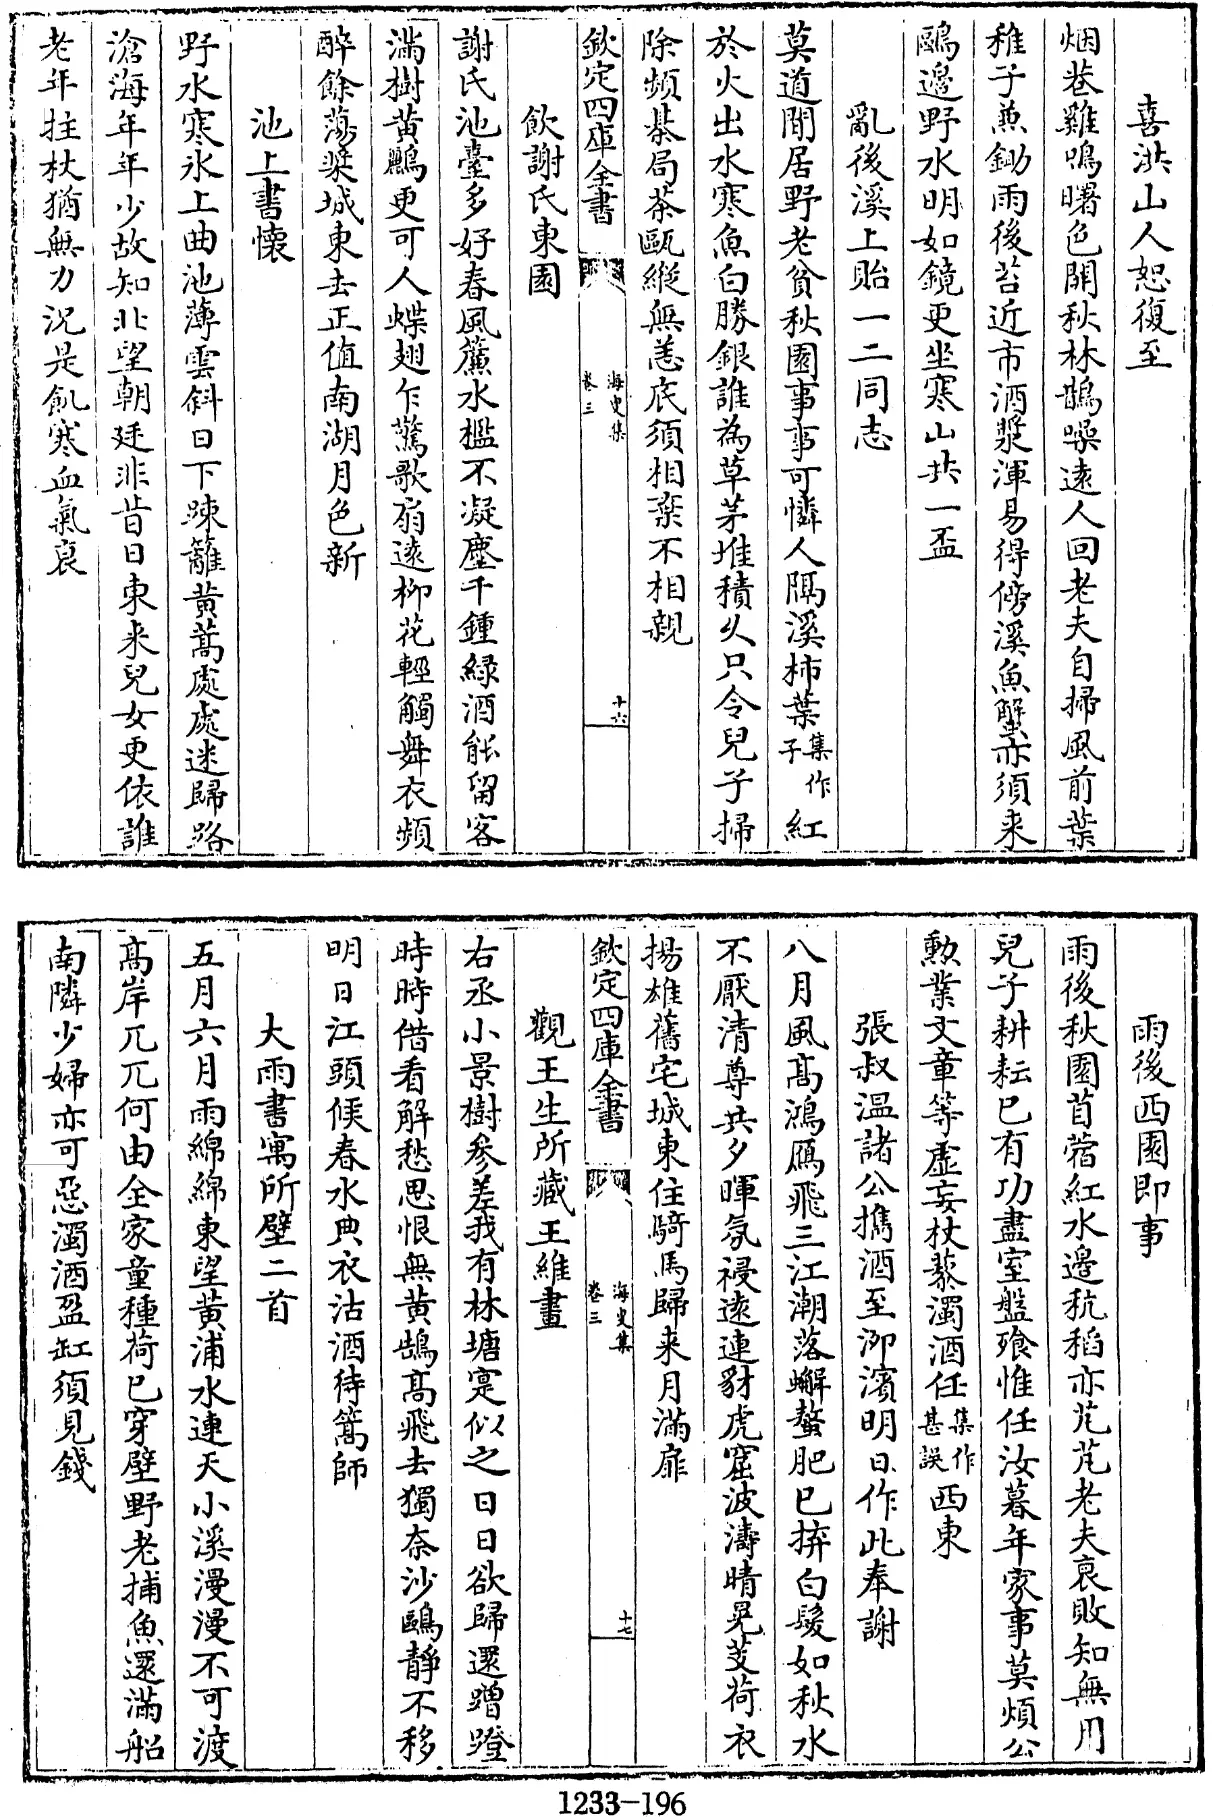 喜洪山人恕復至
烟巷雞鳴曙色開秋林鵲噪遠人回老夫自掃風前葉
稚子兼鋤雨後苔近市酒漿渾易得傍溪魚蟹亦須來
鷗邊野水明如鏡更坐寒山共一盃
亂後溪上貽一二同志
莫道閒居野老貧秋園事事可憐人隔溪柿葉集作子紅
於火出水寒魚白勝銀誰為草茅堆積久只令兒子掃
除頻棊局茶甌縱無恙底須相棄不相親
欽定四庫全書
海叟集
卷三
十六
飲謝氏東園
謝氏池臺多好春風簾水檻不凝塵千鍾緑酒能留客
滿樹黄鸝更可人蝶翅乍驚歌扇遠柳花輕觸舞衣頻
醉餘蕩槳城東去正值南湖月色新
池上書懷
野水寒氷上曲池薄雲斜日下踈籬黄蒿處處迷歸路
滄海年年少故知北望朝廷非昔日東來兒女更依誰
老年拄杖猶無力況是飢寒血氣衰
雨後西園即事
雨後秋園苜蓿紅水邊秔稻亦芃芃老夫衰敗知無用
兒子耕耘已有功盡室盤飱惟任汝暮年家事莫煩公
勲業文章等虛妄杖藜濁酒任集作甚誤西東
張叔温諸公携酒至泖濱明日作此奉謝
八月風髙鴻鴈飛三江潮落蠏螯肥已拚白髮如秋水
不厭清尊共夕暉氛祲遠連豺虎窟波濤晴晃芰荷衣
揚雄舊宅城東住騎馬歸来月滿扉
欽定四庫全書
海叟集
卷三
十七
觀王生所藏王維畫
右丞小景樹參差我有林塘寔似之日日欲歸還蹭蹬
時時借看解愁思恨無黄鵠髙飛去獨奈沙鷗靜不移
明日江頭候春水典衣沽酒待篙師
大雨書寓所壁二首
五月六月雨綿綿東望黄浦水連天小溪漫漫不可渡
髙岸兀兀何由全家童種荷已穿壁野老捕魚還滿船
南隣少婦亦可惡濁酒盈缸須見錢
1233-196